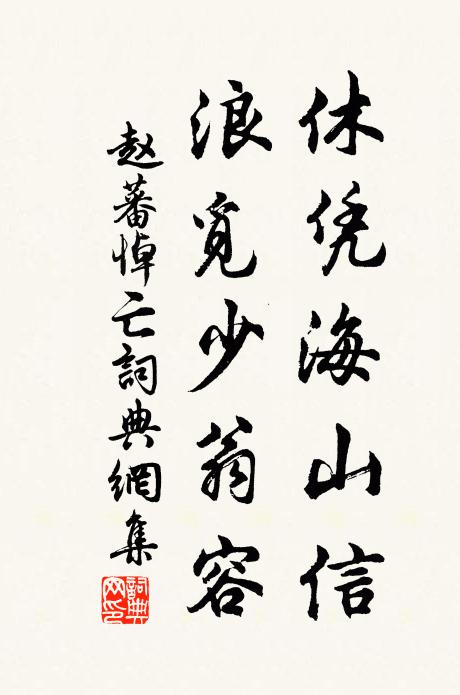 休凭海山信
浪觅少翁容
赵蕃悼亡詞典網集
詞典网印